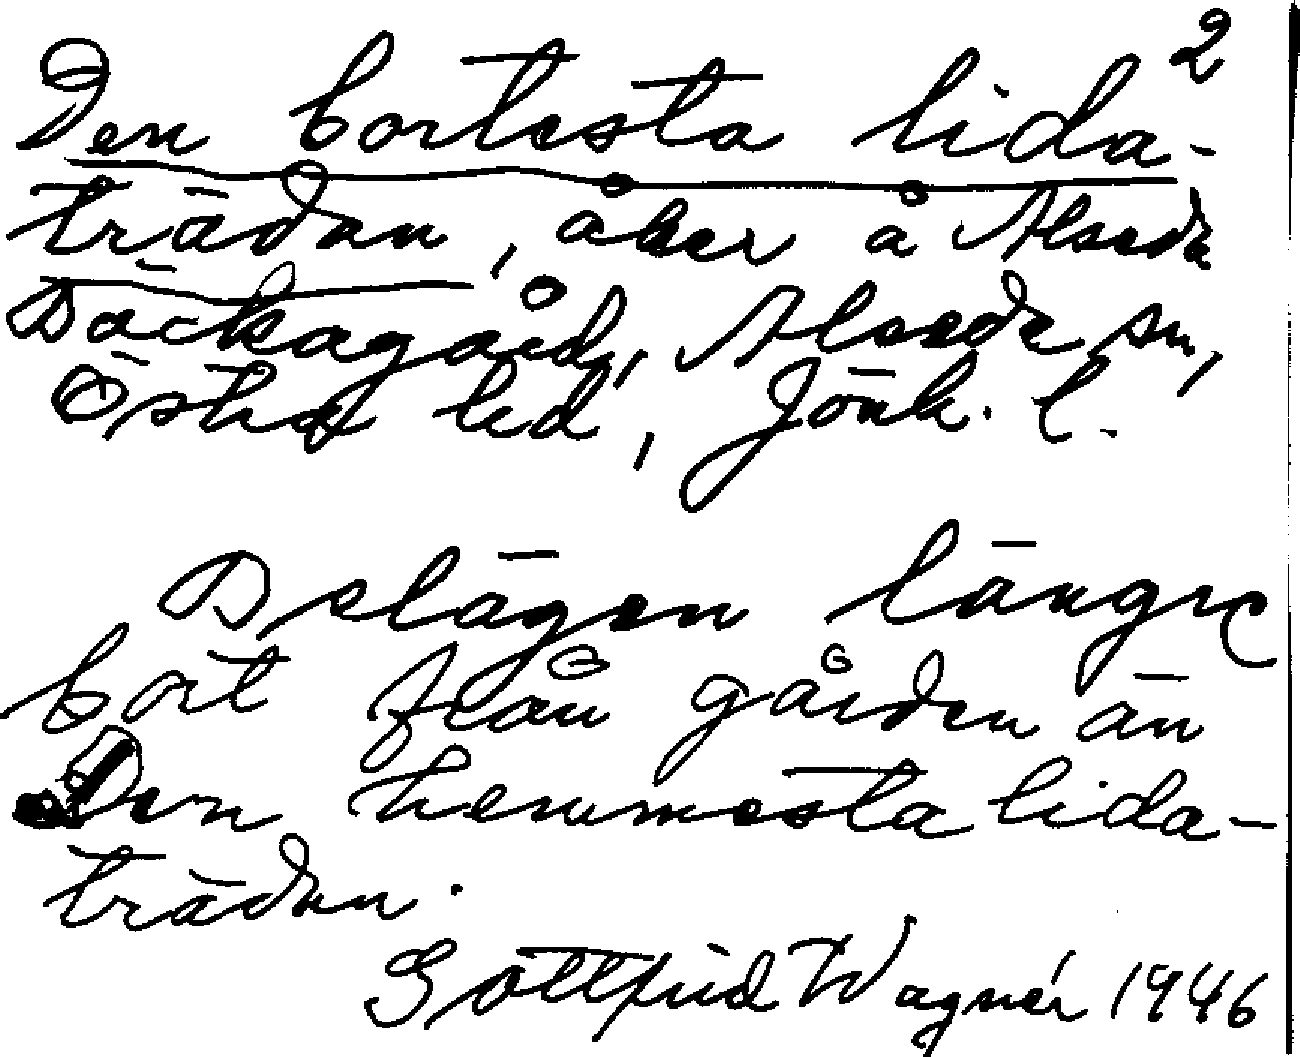 2
Den bortesta lida-
trädan, åker å Alseda
Backagård, Alseda sn,
Östra hd, Jönk. l.
Belägen längre
bort från gården än
Den hemmesta lida-
trädan.
Gottfrid Wagnér 1946